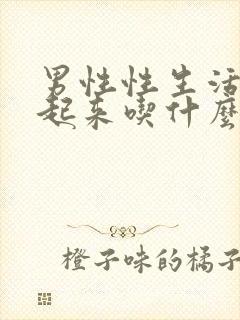 男性性生活
起来喫什麼
橙子味的橘子